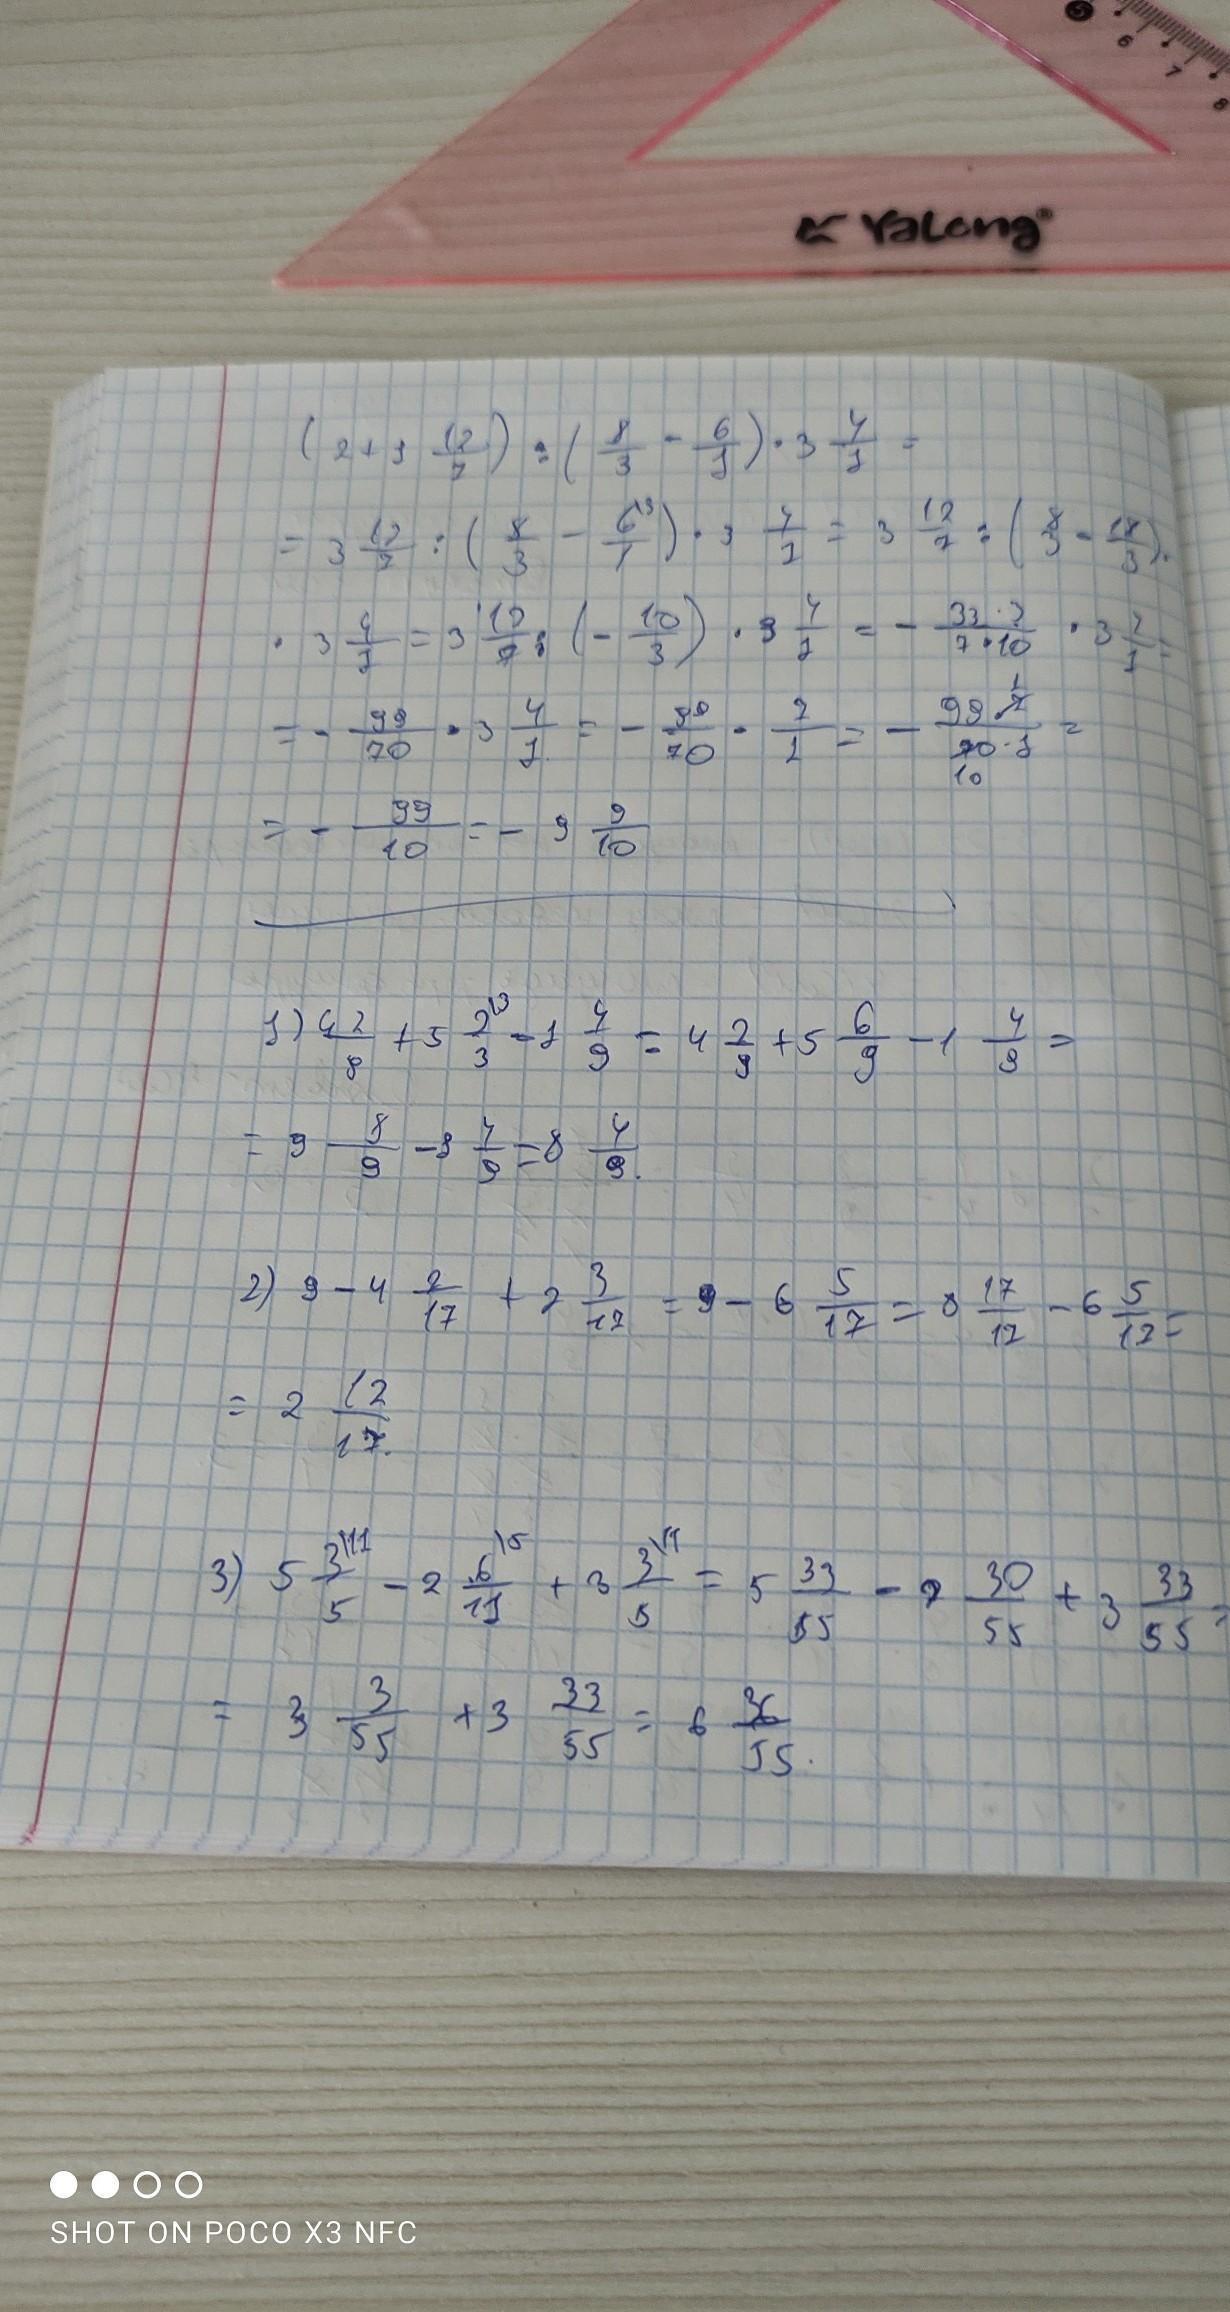 6
7
8
Yalong®
(2+1 12/7) : (8/3 - 6/1) · 3 4/1 =
= 3 12/7 : (8/3 - 6\3/1) · 3 4/1 = 3 12/7 : (8/3 - 18/3) ·
· 3 4/1 = 3 12/7 : (- 10/3) · 3 4/1 = - 33·3/7·10 · 3 4/1 =
= - 99/70 · 3 4/1 = - 99/70 · 7/1 = - 99·7/70·1 =
10
= - 99/10 = - 9 9/10
1) 4 2/8 + 5 2\3/3 - 1 4/9 = 4 2/9 + 5 6/9 - 1 4/9 =
= 9 8/9 - 1 4/9 = 8 4/9.
2) 9 - 4 2/17 + 2 3/17 = 9 - 6 5/17 = 8 17/17 - 6 5/17 =
= 2 12/17.
3) 5 3\11/5 - 2 6\5/11 + 3 3\11/5 = 5 33/55 - 2 30/55 + 3 33/55 =
= 3 3/55 + 3 33/55 = 6 36/55.
SHOT ON POCO X3 NFC